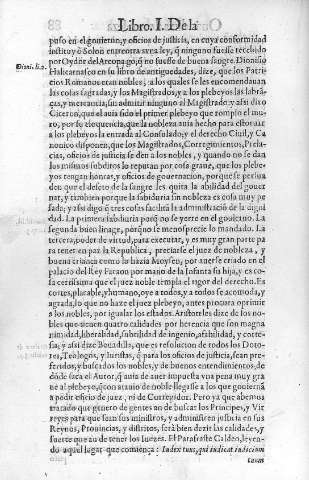 Libro. I. De la
puso en el gouierno, y oficios de justicia, en cuya conformidad
instituyò Solon entre otras vna ley, q̃ ninguno fuesse recebido
por Oydor del Areopago, q̃ no fuesse de buena sangre. Dionisio
Dioni. li.2.
Halicarnaseo en su libro de antiguedades, dize, que los Patri
cios Romanos eran nobles, a los quales se les encomendauan
las cosas sagradas, y los Magistrados, y a los plebeyos las labrã,
ças y mercancia, sin admitir ninguno al Magistrado: y assi dixo
Ciceron, que el auia sido el primer plebeyo que rompio el mu
ro, por su eloquencia, que la nobleza auia hecho para estoruar
a los plebeyos la entrada al Consulado, y el derecho Ciuil, y Ca
nonico disponen, que los Magistrados, Corregimientos, Prela-
cias, oficios de justicia se den a los nobles, y quando no se dan
los mismos subditos lo reputan por cosa graue, que los plebe-
yos tengan honras, y oficios de gouernacion, porque se persua
den que el defeto de la sangre les quita la abilidad del gouer
nar, y tambien porque la sabiduria sin nobleza es cosa muy pe
sada; y assi digo q̃ tres cosas facilita la administraciõ de la digni
dad. La primera sabiduria porq̃ no se yerre en el gouierno. La
segunda buen linage, porq̃ no se menosprecie lo mandado. La
tercera, poder de virtud, para executar, y es muy gran parte pa
ra tener en paz la Republica, preciarse el juez de nobleza, y
buena criança como lo hazia Moysen, por auerse criado en el
palacio del Rey Faraon por mano de la Infanta su hija, y es co-
sa certissima que el juez noble templa el rigor del derecho. Es
cortes, plazible, y humano, oye a todos, y a todos se acomoda, y
agrada, lo que no haze el juez plebeyo, antes procura oprimir
a los nobles, por igualar los estados. Aristoteles dize de los no-
bles que tienen quatro calidades por herencia que son magna
nimidad, liberalidad, sutilidad de ingenio, afabilidad, y corte-
sia; y assi dize Bouadilla, que es resolucion de todos los Doto-
res, Teologos, y Iuristas, q̃ para los oficios de justicia, sean pre-
feridos, y buscados los nobles, y de buenos entendimientos, de
dõde saca el Autor, q̃ auia de auer impuesta vna pena muy gra
ue al plebeyo, q̃ con atauio de noble llegasse a los que gouiernã
a pedir oficio de juez, ni de Corregidor. Pero ya que abemos
tratado que genero de gentes an de buscar los Principes, y Vir
reyes para que sean sus ministros, y administren justicia en sus
Reynos, Prouincias, y distritos, serà bien dezir las calidades, y
suerte que an de tener los juezes. El Parafraste Calden, leyen-
do aquel lugar que comiença: Iudex tuus, qui indicat iudicium
tuum